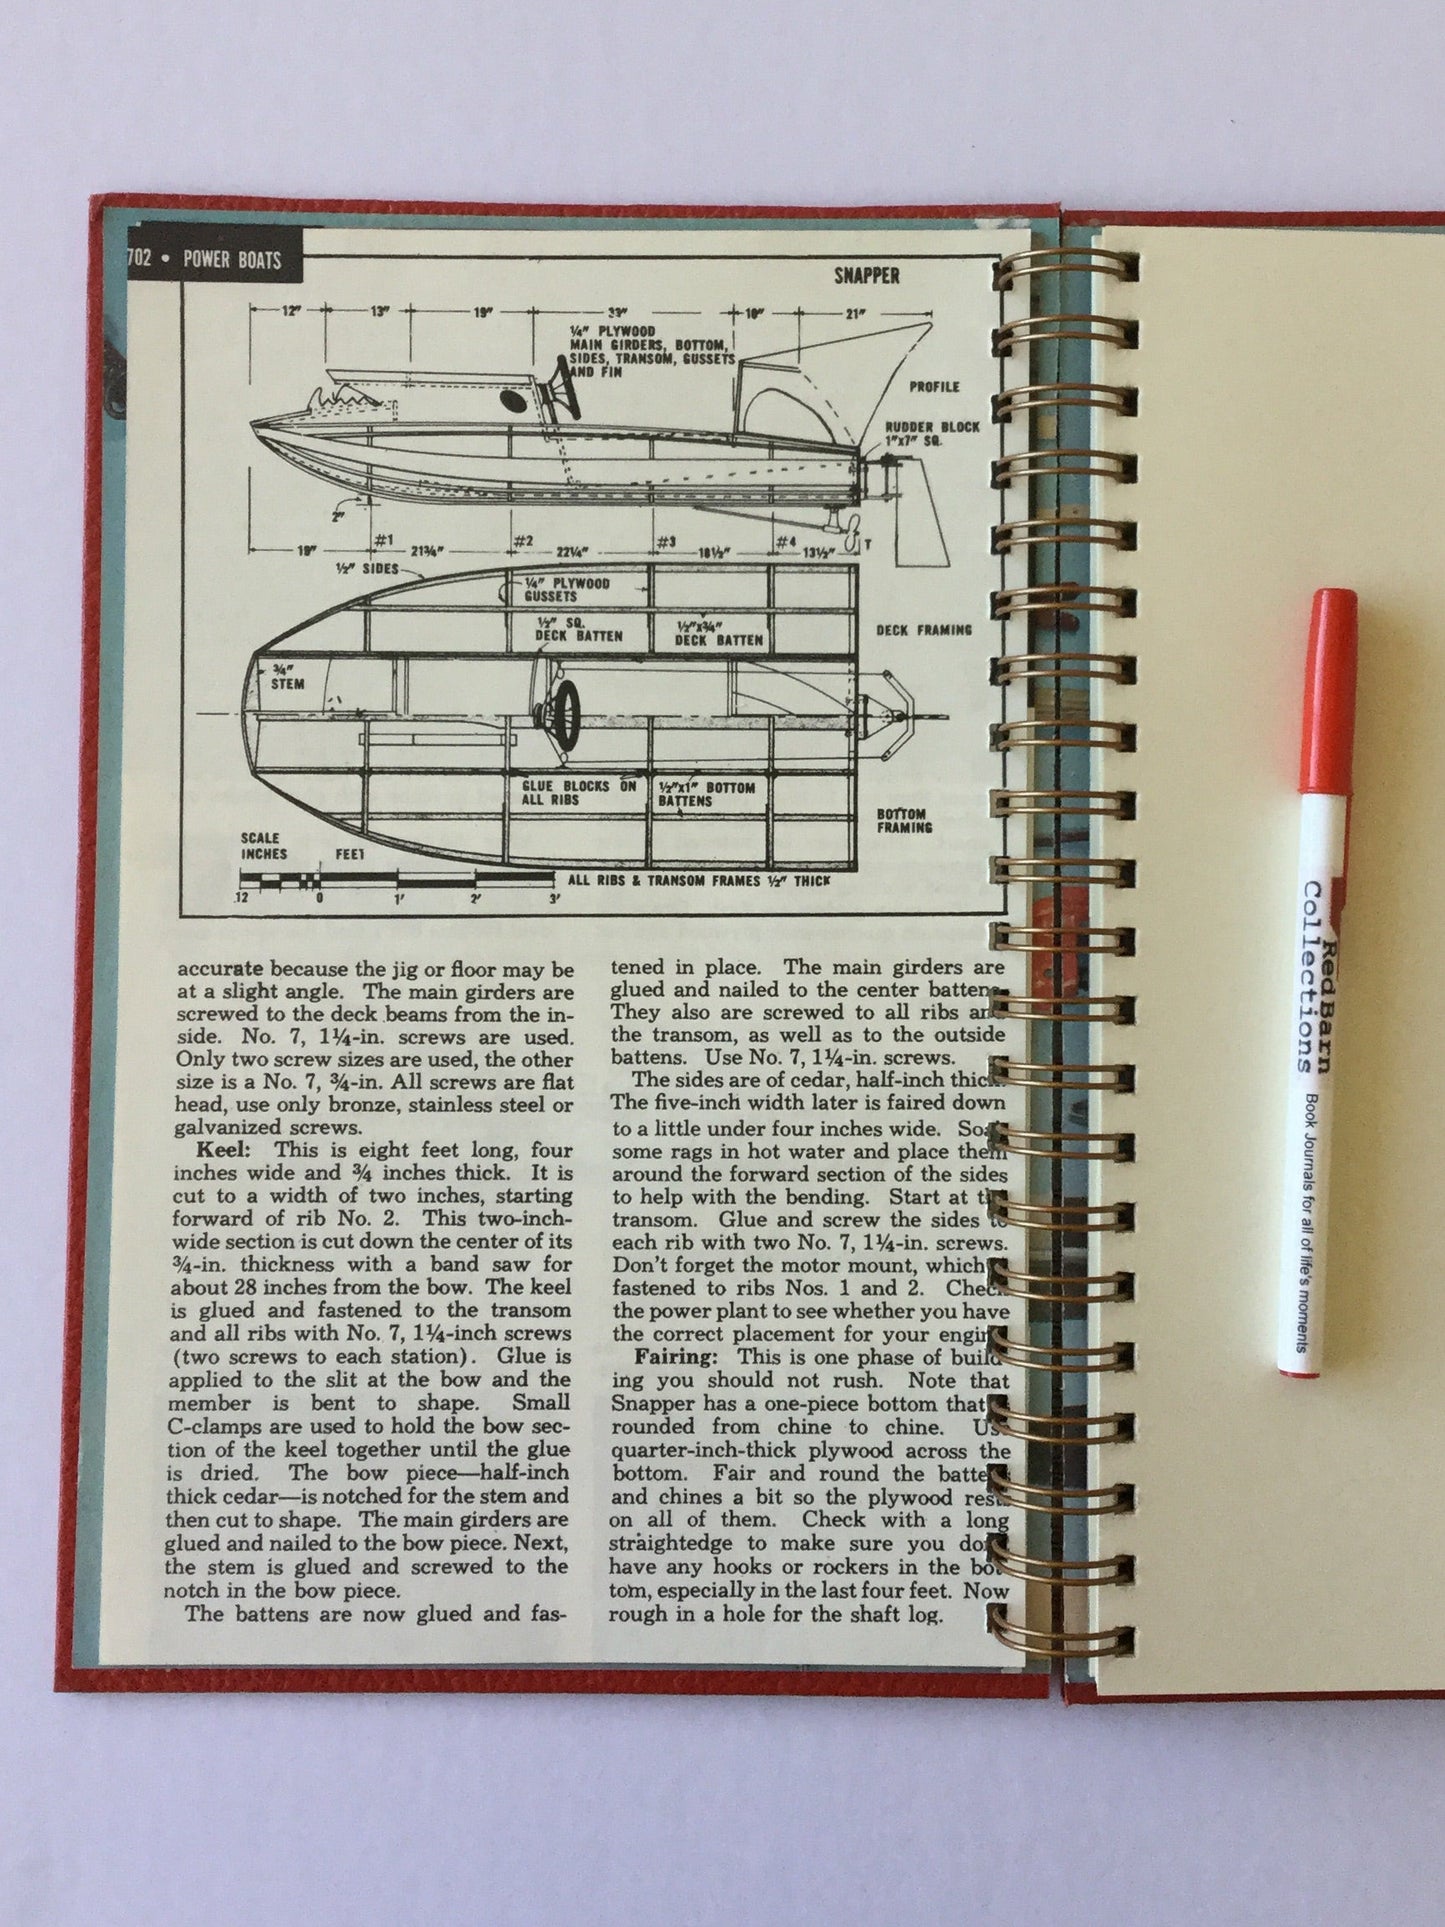 702 • POWER BOATS
SNAPPER
12" 13" 19" 33" 10" 21"
1/4" PLYWOOD
MAIN GIRDERS, BOTTOM,
SIDES, TRANSOM, GUSSETS
AND FIN
PROFILE
RUDDER BLOCK
1"x7" SQ.
2"
#1 #2 #3 #4 T
21¾" 22¼" 18½" 13½"
½" SIDES
¼" PLYWOOD
GUSSETS
½" SQ.
DECK BATTEN
½"x¾"
DECK BATTEN
DECK FRAMING
¾"
STEM
GLUE BLOCKS ON
ALL RIBS
½"x1" BOTTOM
BATTENS
BOTTOM
FRAMING
SCALE
INCHES FEET
12 0 1' 2' 3'
ALL RIBS & TRANSOM FRAMES ½" THICK
accurate because the jig or floor may be
at a slight angle. The main girders are
screwed to the deck beams from the in-
side. No. 7, 1¼-in. screws are used.
Only two screw sizes are used, the other
size is a No. 7, ¾-in. All screws are flat
head, use only bronze, stainless steel or
galvanized screws.
Keel: This is eight feet long, four
inches wide and ¾ inches thick. It is
cut to a width of two inches, starting
forward of rib No. 2. This two-inch-
wide section is cut down the center of its
¾-in. thickness with a band saw for
about 28 inches from the bow. The keel
is glued and fastened to the transom
and all ribs with No. 7, 1¼-inch screws
(two screws to each station). Glue is
applied to the slit at the bow and the
member is bent to shape. Small
C-clamps are used to hold the bow sec-
tion of the keel together until the glue
is dried. The bow piece—half-inch
thick cedar—is notched for the stem and
then cut to shape. The main girders are
glued and nailed to the bow piece. Next,
the stem is glued and screwed to the
notch in the bow piece.
The battens are now glued and fas-
tened in place. The main girders are
glued and nailed to the center battens.
They also are screwed to all ribs and
the transom, as well as to the outside
battens. Use No. 7, 1¼-in. screws.
The sides are of cedar, half-inch thick.
The five-inch width later is faired down
to a little under four inches wide. Soak
some rags in hot water and place them
around the forward section of the sides
to help with the bending. Start at the
transom. Glue and screw the sides to
each rib with two No. 7, 1¼-in. screws.
Don't forget the motor mount, which
fastened to ribs Nos. 1 and 2. Check
the power plant to see whether you have
the correct placement for your engine.
Fairing: This is one phase of build-
ing you should not rush. Note that
Snapper has a one-piece bottom that
rounded from chine to chine. Use
quarter-inch-thick plywood across the
bottom. Fair and round the battens
and chines a bit so the plywood rests
on all of them. Check with a long
straightedge to make sure you don't
have any hooks or rockers in the bot-
tom, especially in the last four feet. Now
rough in a hole for the shaft log.
Red Barn
Collections
Book Journals for all of life's moments